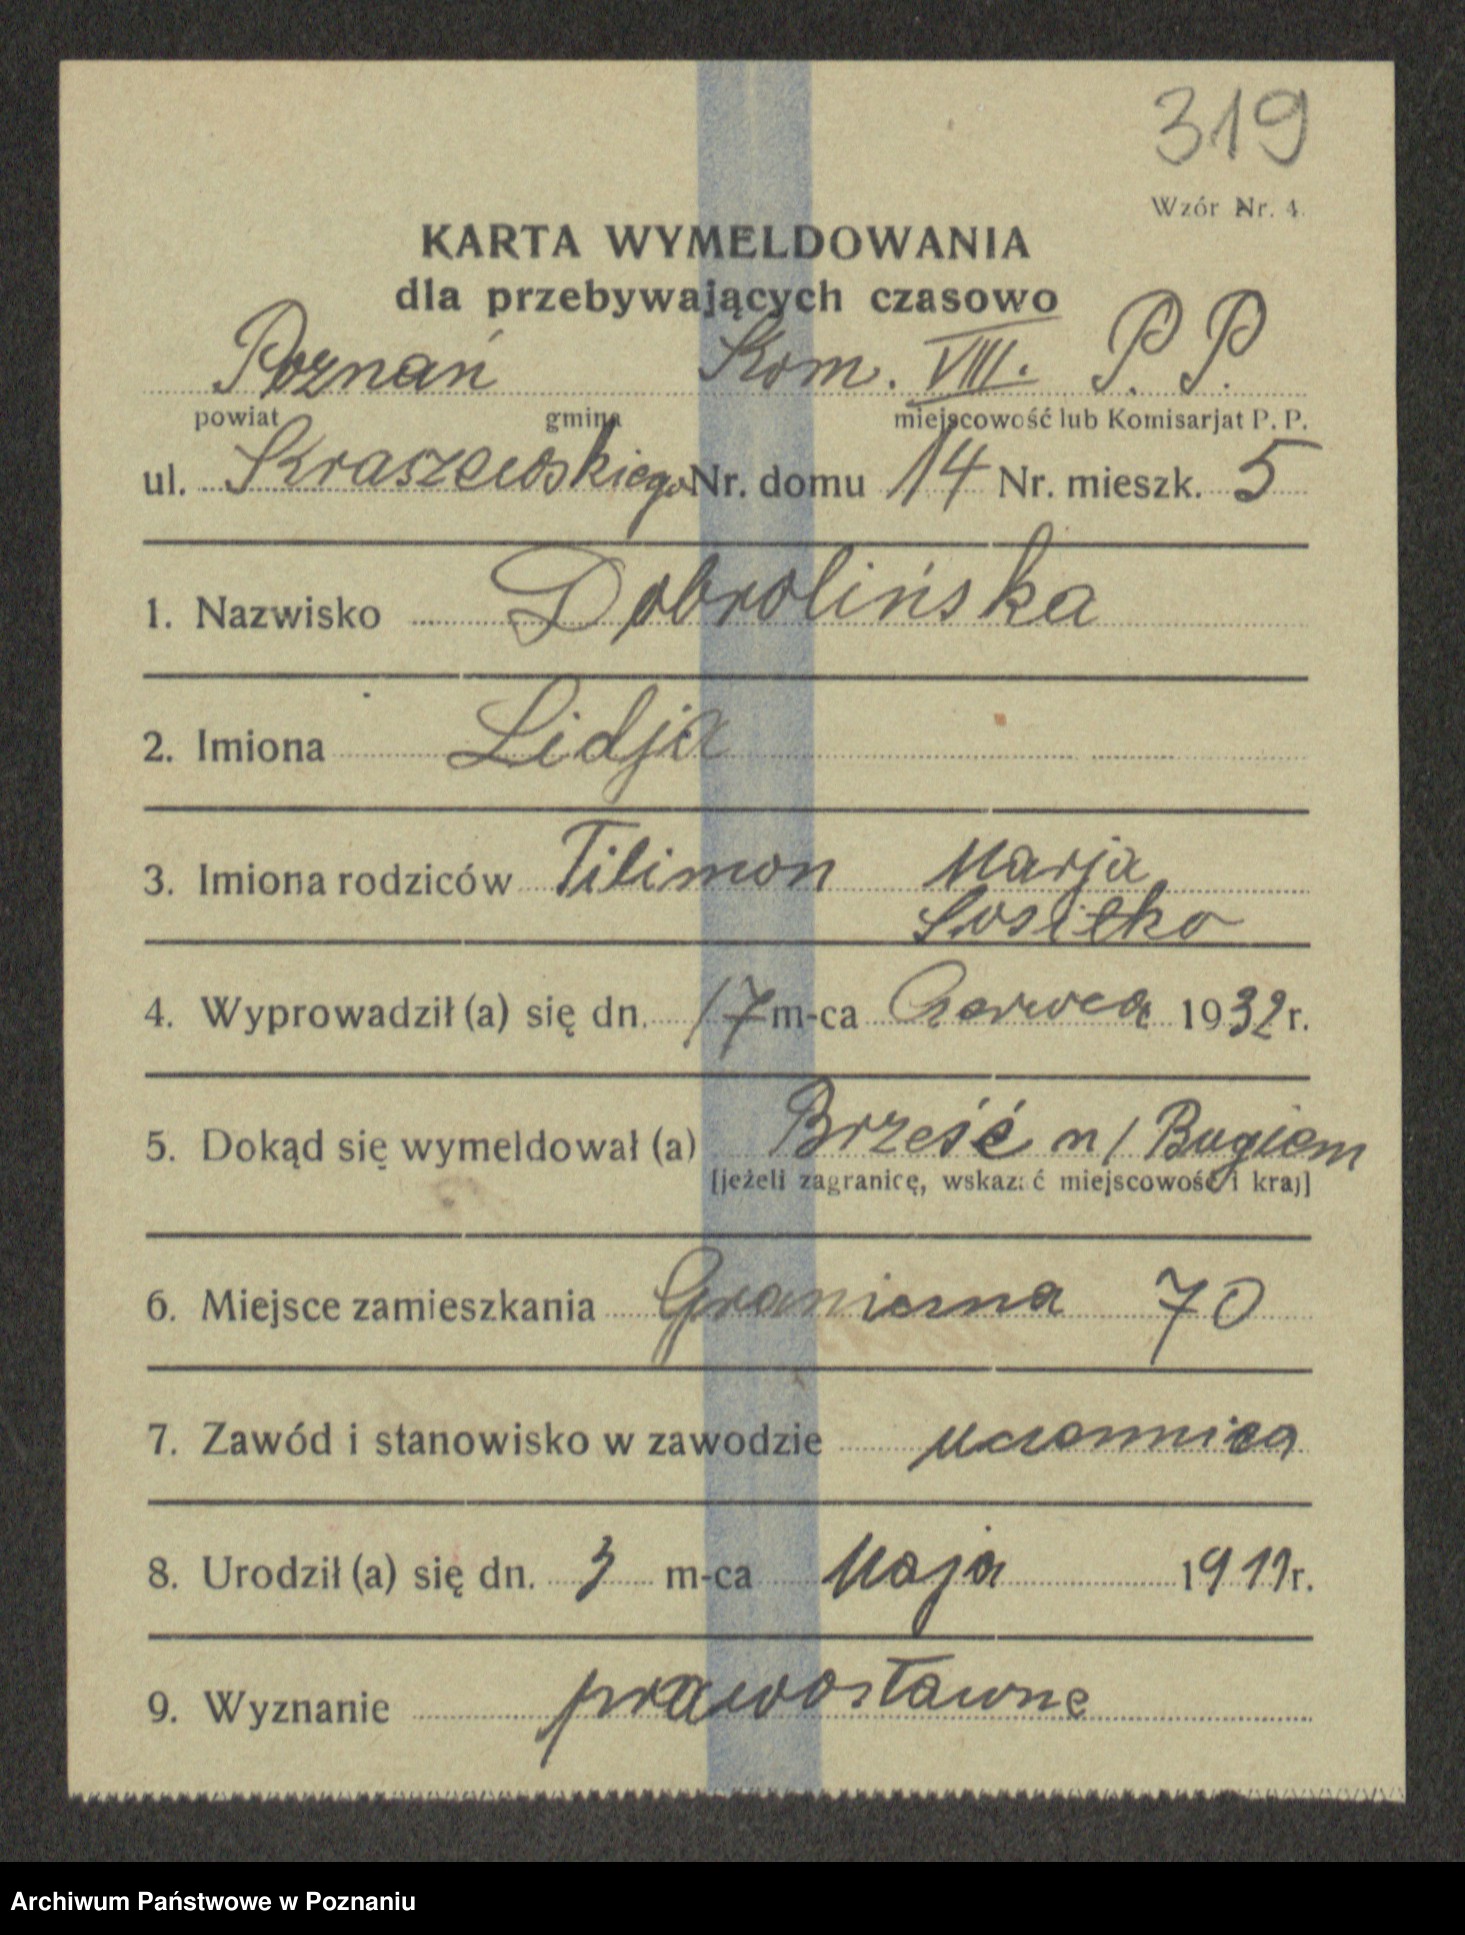 319
Wzór Nr. 4.
KARTA WYMELDOWANIA
dla przebywających czasowo
Poznań Kom. VIII. P. P.
powiat gmina miejscowość lub Komisarjat P. P.
ul. Kraszewskiego Nr. domu 14 Nr. mieszk. 5
1. Nazwisko Dobrolińska
2. Imiona Lidja
3. Imiona rodziców Filimon Marja
4. Wyprowadził (a) się dn. 17 m-ca Czerwca 1932 r.
5. Dokąd się wymeldował (a) Brześć n/Bugiem
[jeżeli zagranicę, wskazać miejscowość i kraj]
6. Miejsce zamieszkania Graniczna 70
7. Zawód i stanowisko w zawodzie uczennica
8. Urodził (a) się dn. 3 m-ca Maja 1911 r.
9. Wyznanie prawosławne
Archiwum Państwowe w Poznaniu